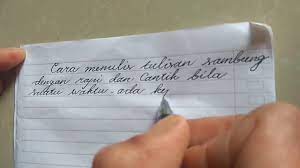 Cara menulis tulisan sambung
dengan rapi dan Cantik bila
suatu waktu - ada ky